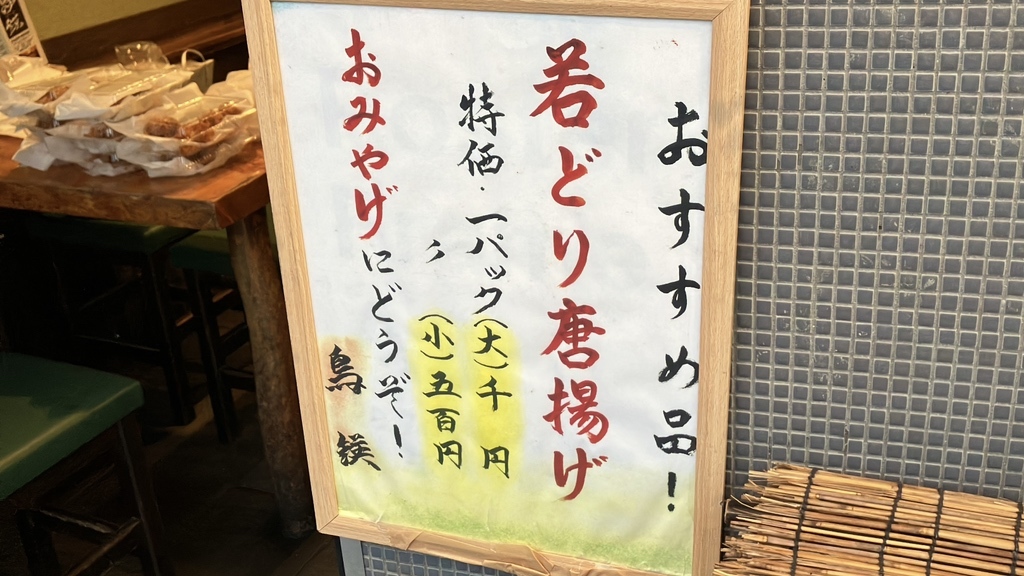 おすすめ品!
若どり唐揚げ
特価・一パック(大)千円
〃(小)五百円
おみやげにどうぞ!
鳥